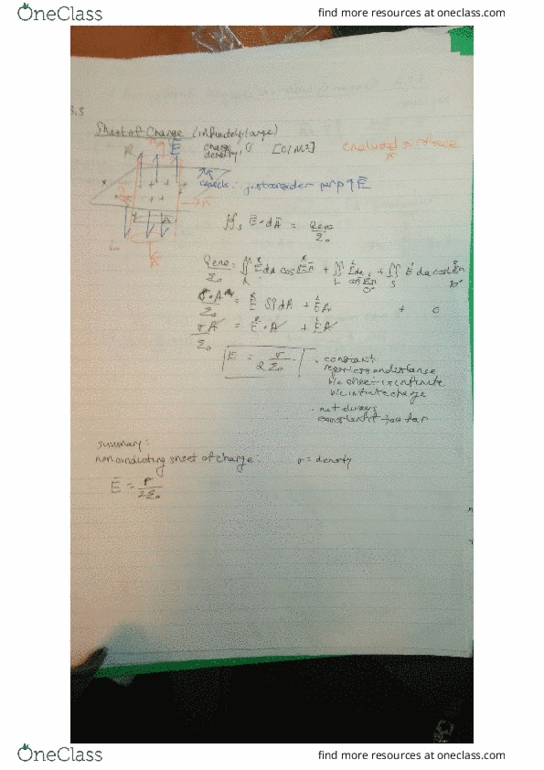 OneClass
find more resources at oneclass.com
3.5
Sheet of Charge (infinitely large)
charge density, σ [C/m²]
enclosed surface
R
E
cancels: just consider perp of E
∯s E • dA = Qenc/Σo
L
Qenc/Σo = ∬R E dA cos + ∬L E dA cos 0° + ∬S E da cos 90°
σ•A/Σo = E ∬dA + EA + 0
σA/Σo = E•A + EA
E = σ/2Σo
• constant
regardless on distance
b/c sheet is infinite
b/c infinite charge
• not always
constant if too far
summary:
nonconducting sheet of charge: σ = density
E = σ/2Σo
OneClass
find more resources at oneclass.com